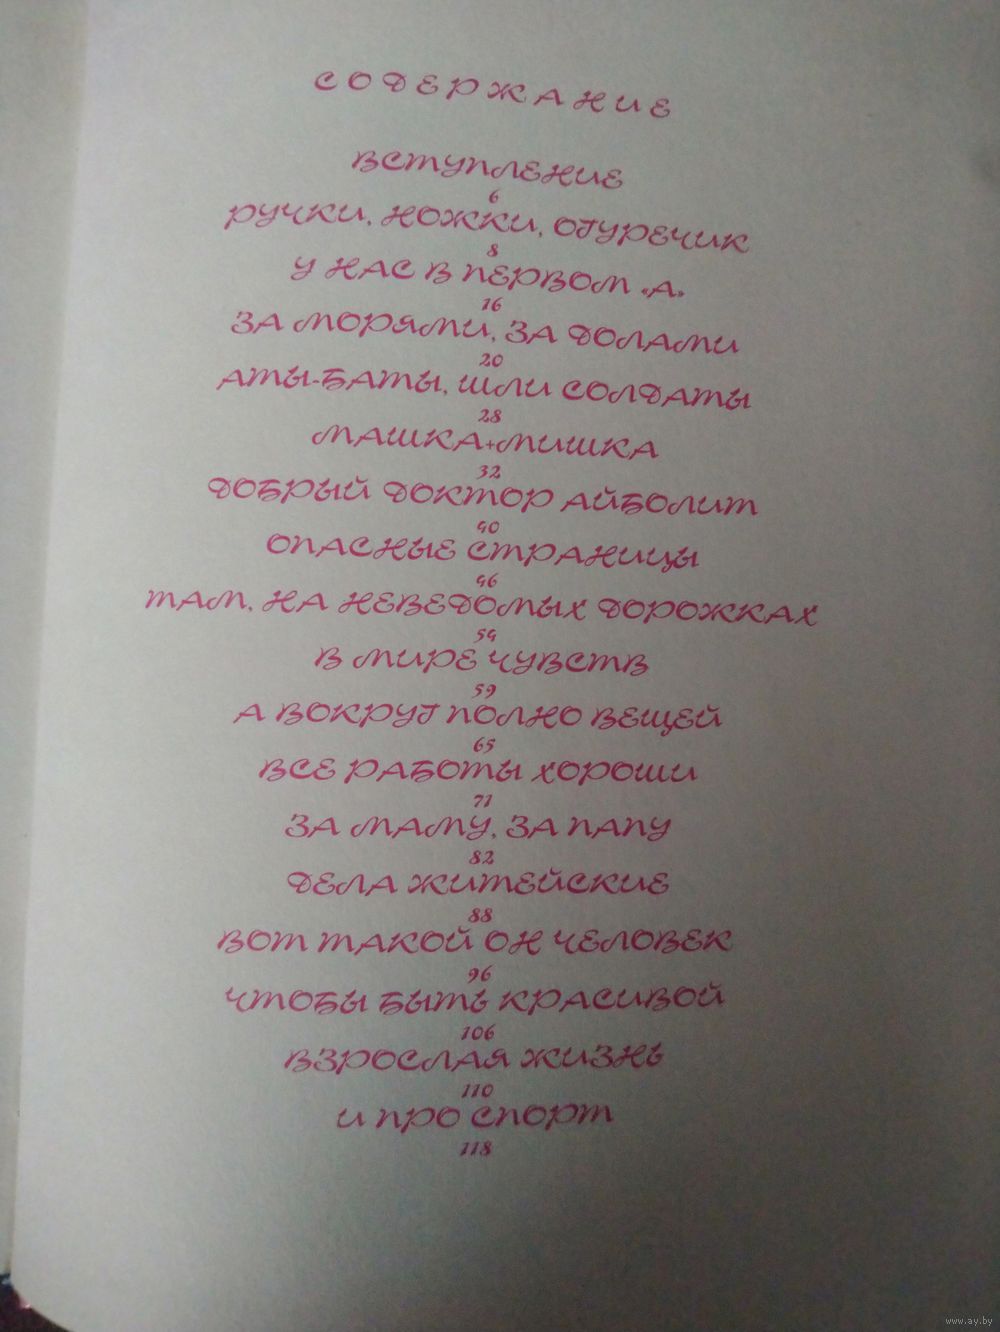 СОДЕРЖАНИЕ
ВСТУПЛЕНИЕ
6
РУЧКИ, НОЖКИ, ОГУРЕЧИК
8
У НАС В ПЕРВОМ «А»
16
ЗА МОРЯМИ, ЗА ДОЛАМИ
20
АТЫ-БАТЫ, ШЛИ СОЛДАТЫ
28
МАШКА+МИШКА
32
ДОБРЫЙ ДОКТОР АЙБОЛИТ
40
ОПАСНЫЕ СТРАНИЦЫ
46
ТАМ, НА НЕВЕДОМЫХ ДОРОЖКАХ
54
В МИРЕ ЧУВСТВ
59
А ВОКРУГ ПОЛНО ВЕЩЕЙ
65
ВСЕ РАБОТЫ ХОРОШИ
71
ЗА МАМУ, ЗА ПАПУ
82
ДЕЛА ЖИТЕЙСКИЕ
88
ВОТ ТАКОЙ ОН ЧЕЛОВЕК
96
ЧТОБЫ БЫТЬ КРАСИВОЙ
106
ВЗРОСЛАЯ ЖИЗНЬ
110
И ПРО СПОРТ
118
www.ay.by